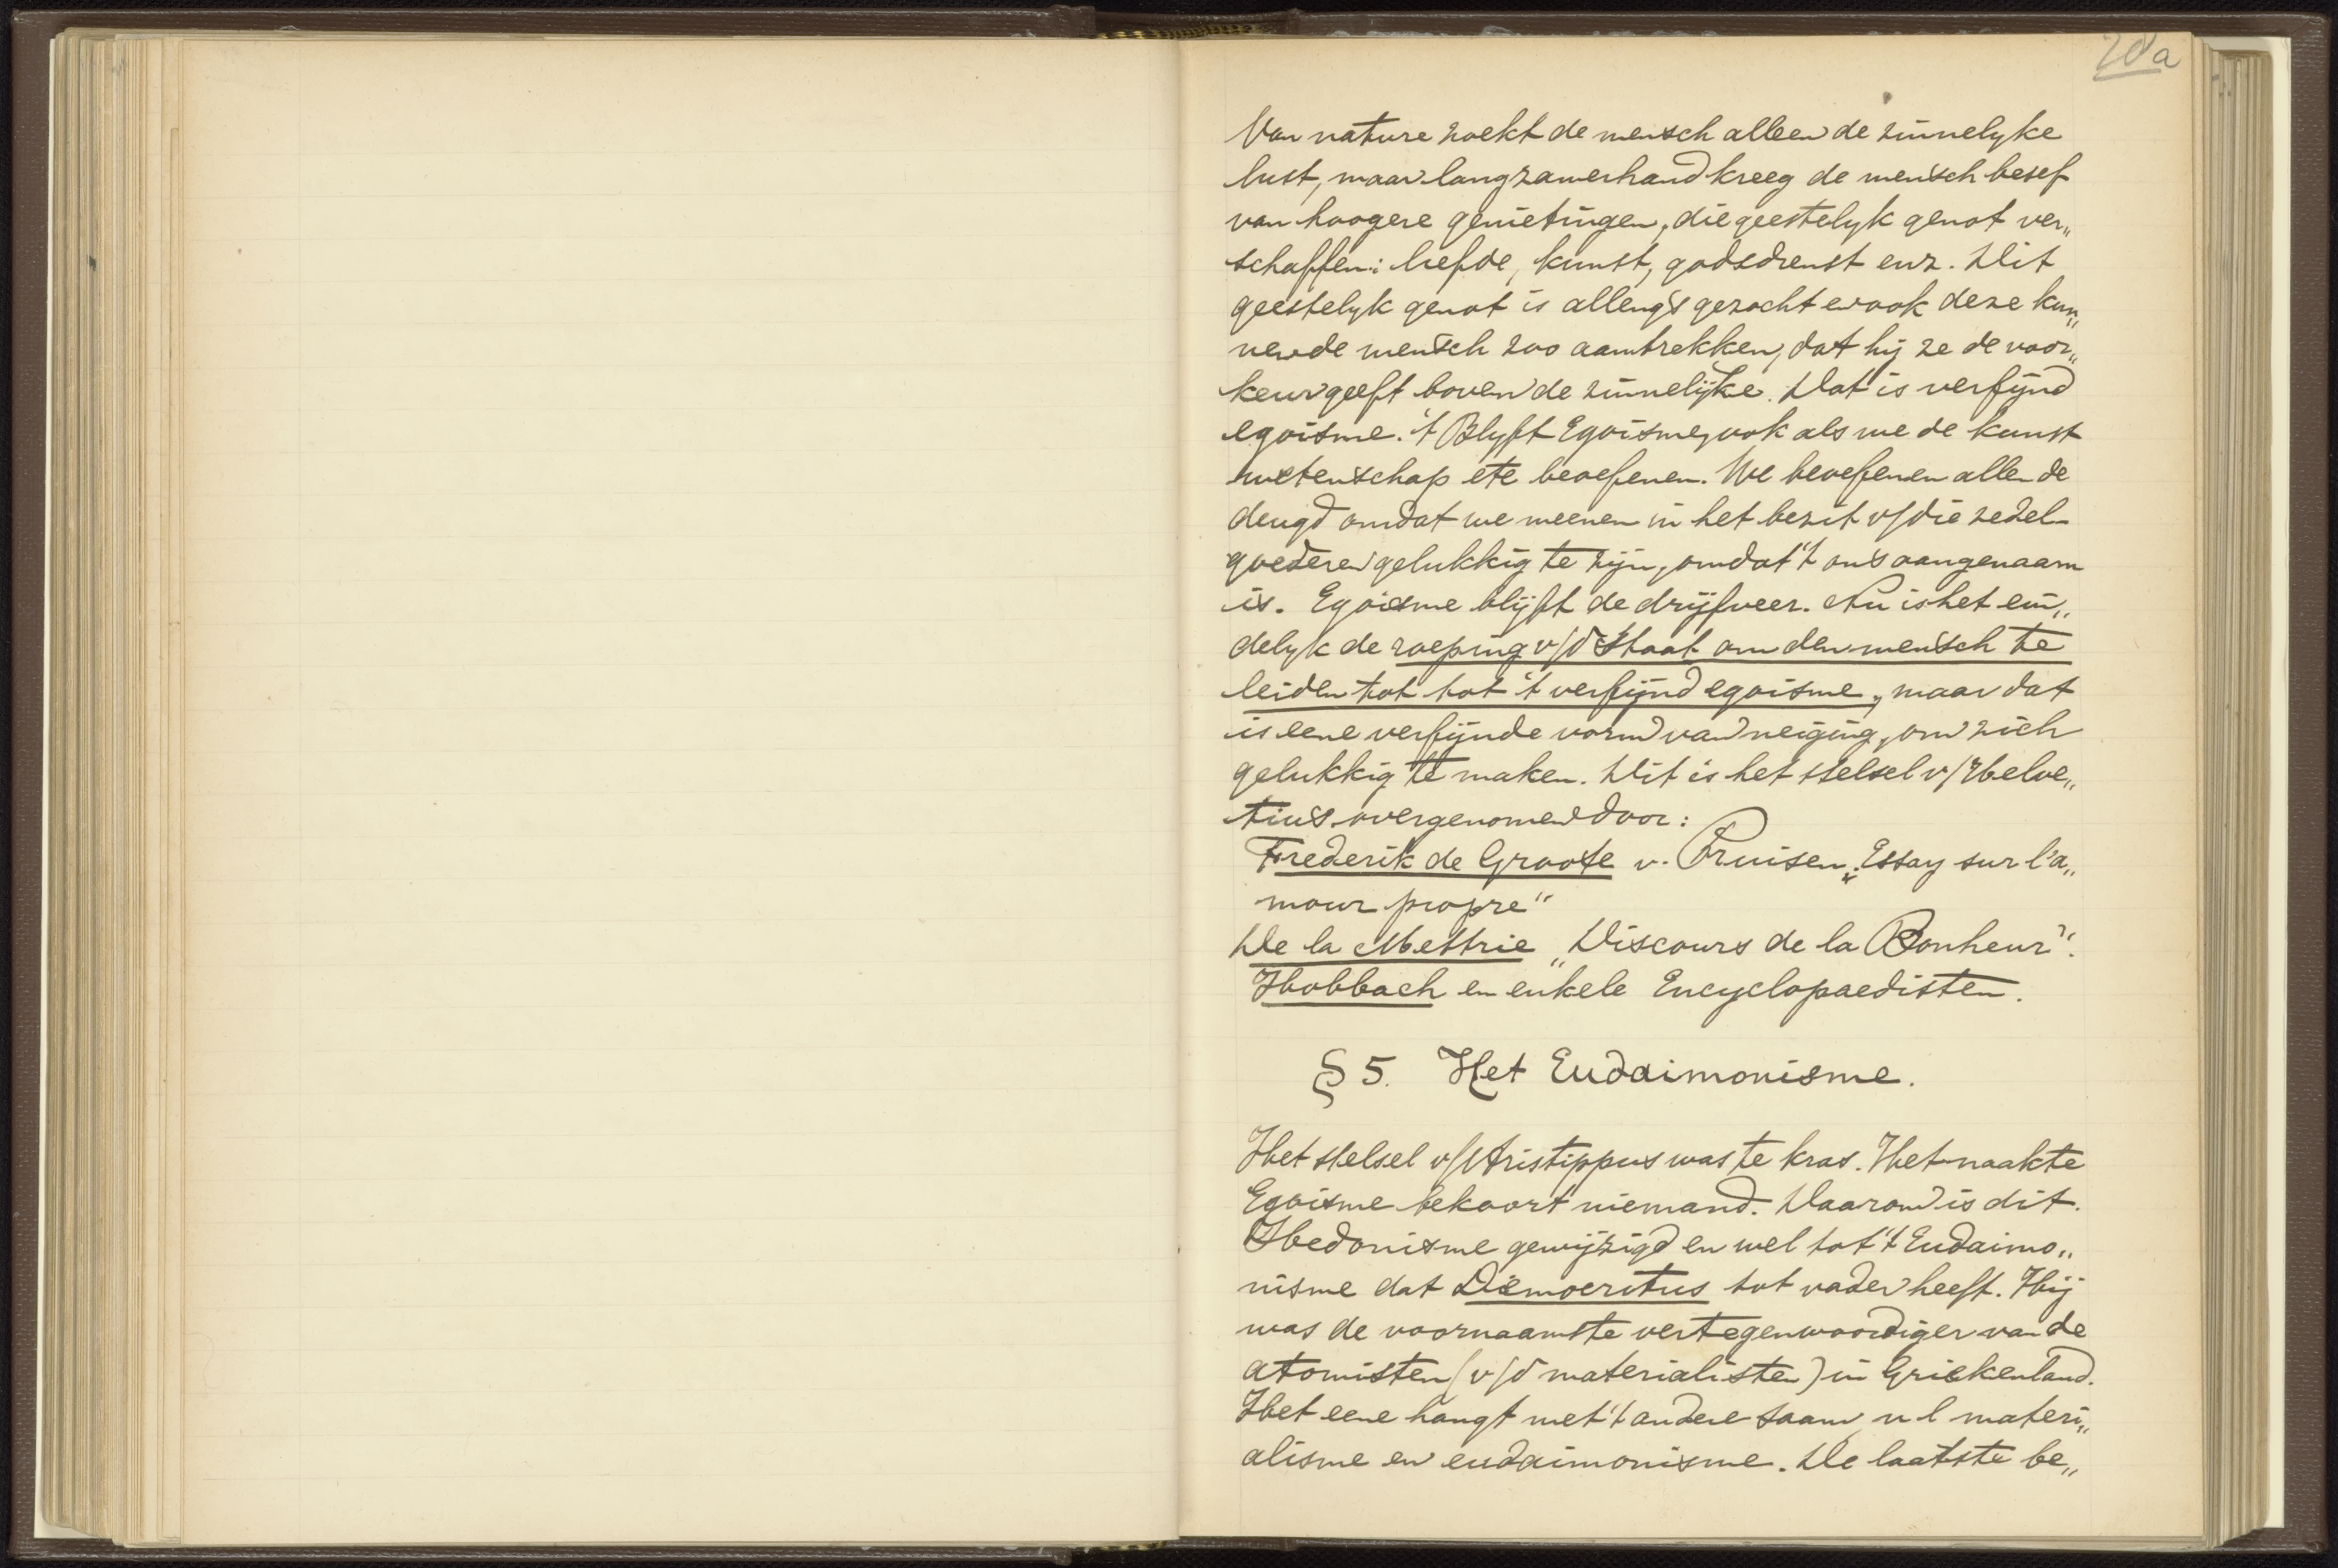 20a
Van nature zoekt de mensch alleen de zinnelyke
lust, maar langzamerhand kreeg de mensch besef
van hoogere genietingen, die geestelyk genot ver„
schaffen: liefde, kunst, godsdienst enz. Dit
geestelyk genot is allengs gezocht en ook deze kun„
nen de mensch zoo aantrekken, dat hij ze de voor„
keur geeft boven de zinnelijke. Dat is verfijnd
egoisme. 't Blyft Egoisme, ook als we de kunst
wetenschap etc beoefenen. We beoefenen allen de
deugd omdat we meenen in het bezit v/die zedel-
goederen gelukkig te zijn, omdat 't ons aangenaam
is. Egoisme blijft de drijfveer. Nu is het ein„
delyk de roeping v/d Staat om den mensch te
leiden tot tot 't verfijnd egoisme, maar dat
is eene verfijnde vorm van neiging, om zich
gelukkig te maken. Dit is het stelsel v/Helve„
tius overgenomen door:
Frederik de Groote v. Pruisen „Essay sur l'a„
mour propre"
De la Mettrie „Discours de la Bonheur".
Holbach en enkele Encyclopaedisten.
§ 5. Het Eudaimonisme.
Het stelsel v/Aristippus was te kras. Het naakte
Egoisme bekoort niemand. Daarom is dit
Hedonisme gewijzigd en wel tot 't Eudaimo„
nisme dat Democritus tot vader heeft. Hij
was de voornaamste vertegenwoordiger van de
atomisten (v/d materialisten) in Griekenland.
Het eene hangt met 't andere saam, n l materi„
alisme en eudaimonisme. De laatste be„